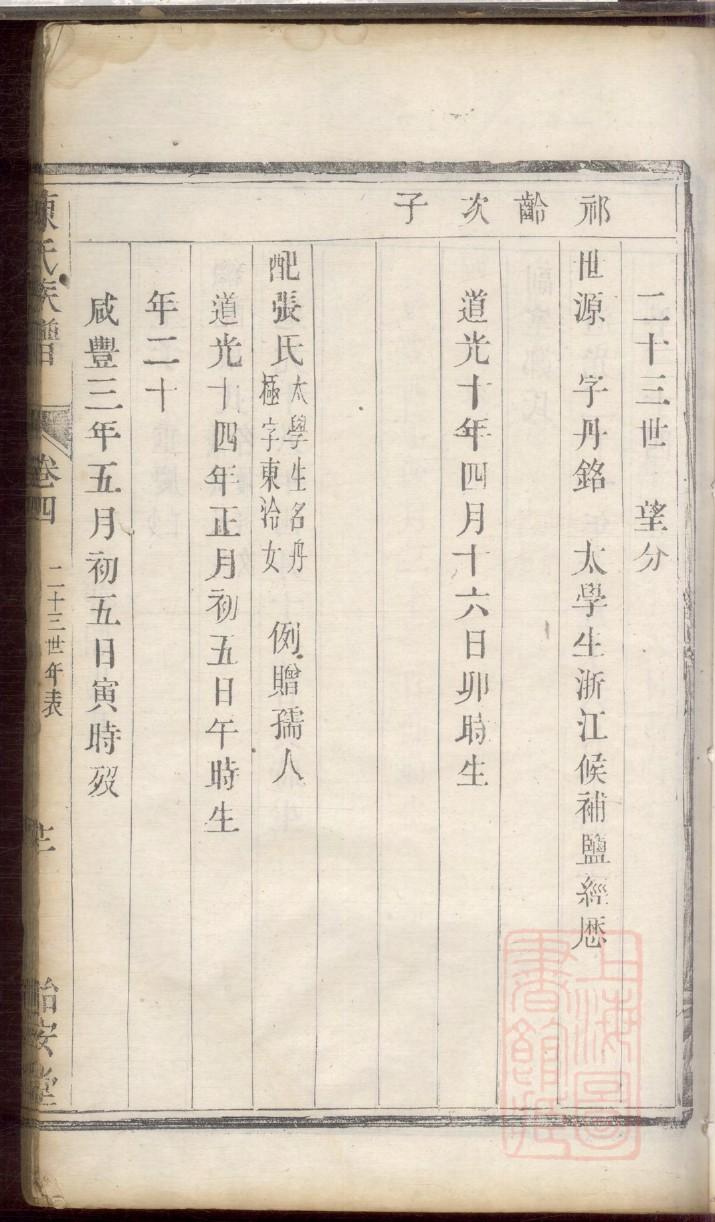 祁齡次子
二十三世 望分
世源 字丹銘 太學生浙江候補鹽經歷
道光十年四月十六日卯時生
配張氏 太學生名丹
極字東泠女 例贈孺人
道光十四年正月初五日午時生
年二十
咸豐三年五月初五日寅時歿
陳氏族譜 卷四 二十三世年表 怡安堂
上海圖書館藏